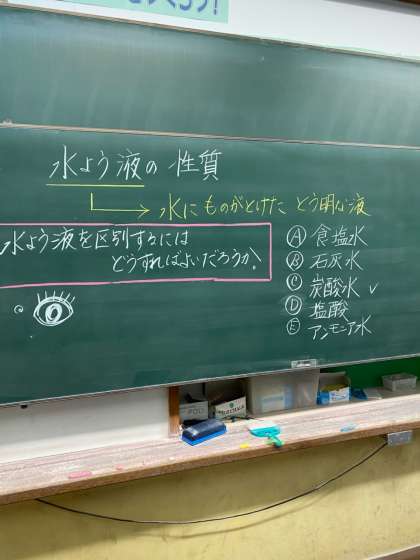 水よう液の性質
水にものがとけた とう明な液
水よう液を区別するには
どうすればよいだろうか。
Ⓐ 食塩水
Ⓑ 石灰水
Ⓒ 炭酸水 ✓
Ⓓ 塩酸
Ⓔ アンモニア水